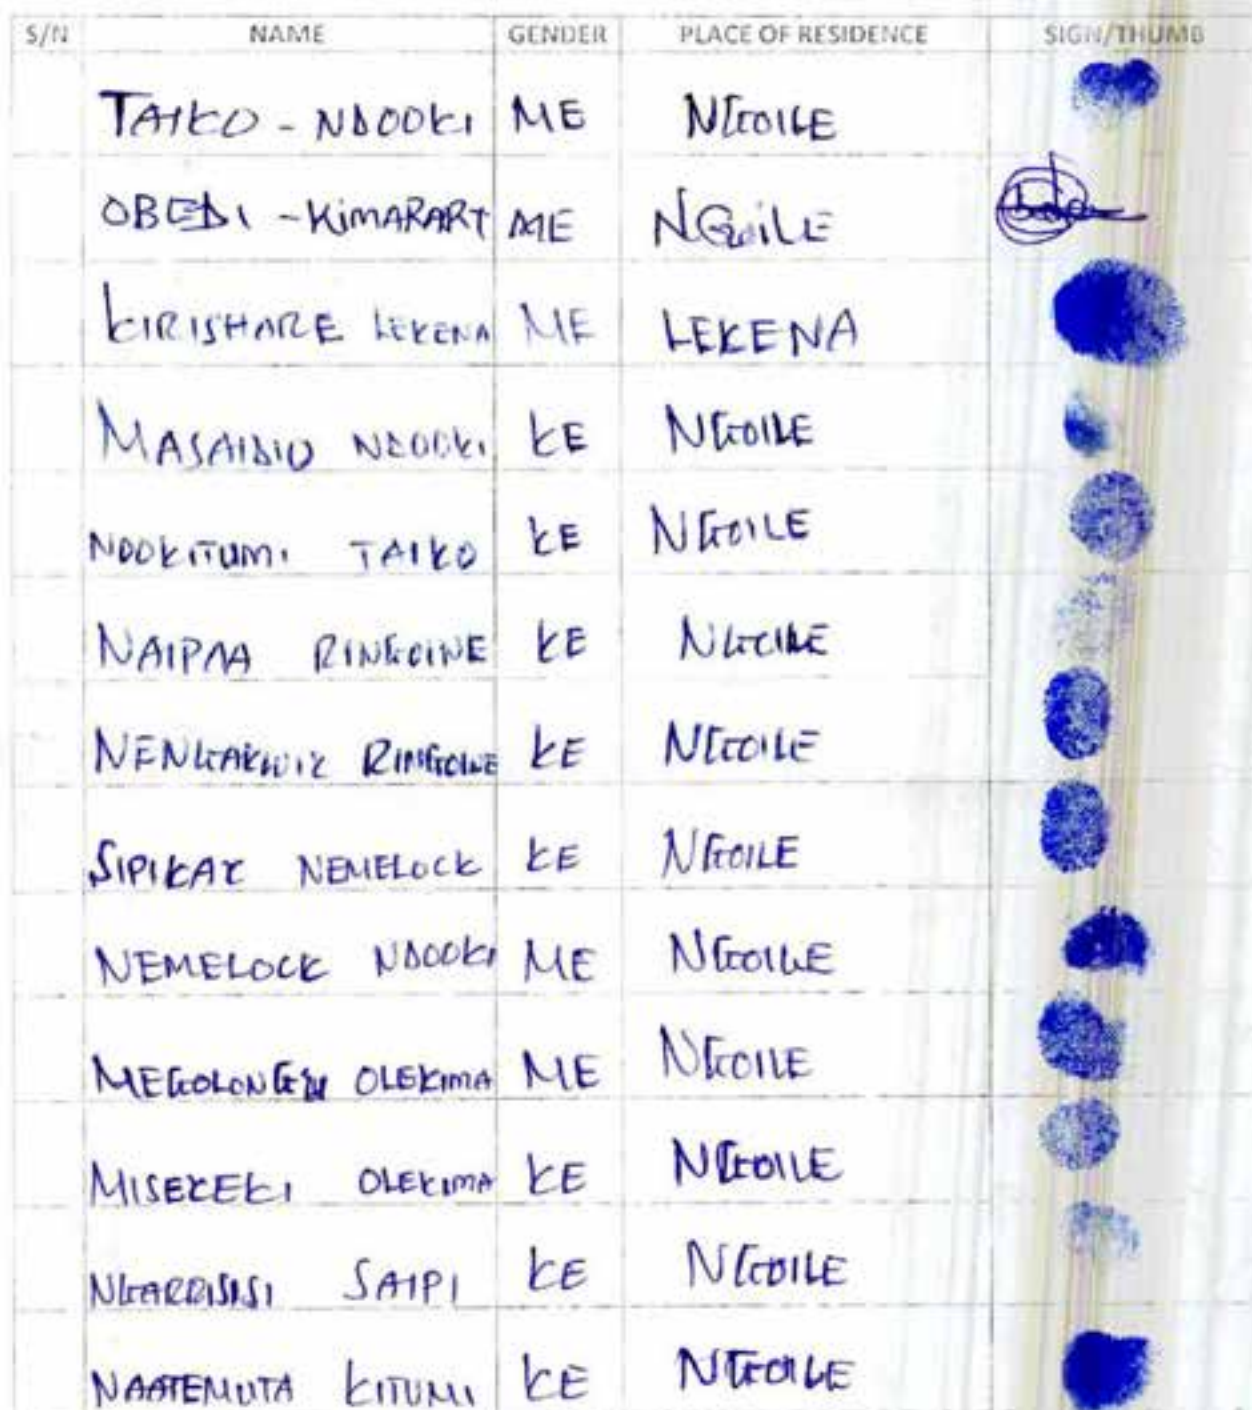 S/N NAME GENDER PLACE OF RESIDENCE SIGN/THUMB
TAIKO - NDOOKI ME NGOILE
OBEDI - KIMARART ME NGOILE
KIRISHARE LEKENA ME LEKENA
MASAIDIO NDOOKI KE NGOILE
NDOKITUMI TAIKO KE NGOILE
NAIPAA RINGOINE KE NGOILE
RINGOINE KE NGOILE
NEMELOCK KE NGOILE
NEMELOCK NDOOKI ME NGOILE
OLEKIMA ME NGOILE
MISEKEKI OLEKIMA KE NGOILE
NGARRISISI SAIPI KE NGOILE
NAATEMUTA KITUMI KE NGOILE